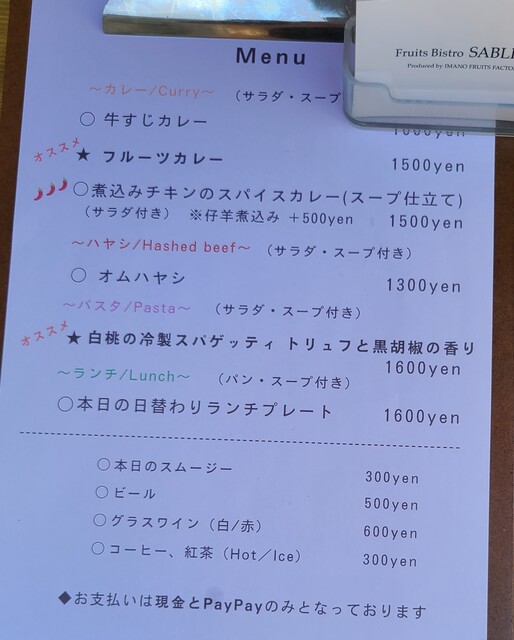 Fruits Bistro SABL
Produced by IMANO FRUITS FACTO
Menu
～カレー/Curry～ （サラダ・スープ
○ 牛すじカレー
オススメ ★ フルーツカレー 1500yen
○煮込みチキンのスパイスカレー(スープ仕立て)
（サラダ付き） ※仔羊煮込み ＋500yen 1500yen
～ハヤシ/Hashed beef～ （サラダ・スープ付き）
○ オムハヤシ 1300yen
～パスタ/Pasta～ （サラダ・スープ付き）
オススメ ★ 白桃の冷製スパゲッティ トリュフと黒胡椒の香り
1600yen
～ランチ/Lunch～ （パン・スープ付き）
○本日の日替わりランチプレート 1600yen
○本日のスムージー 300yen
○ビール 500yen
○グラスワイン（白/赤） 600yen
○コーヒー、紅茶（Hot／Ice） 300yen
◆お支払いは現金とPayPayのみとなっております